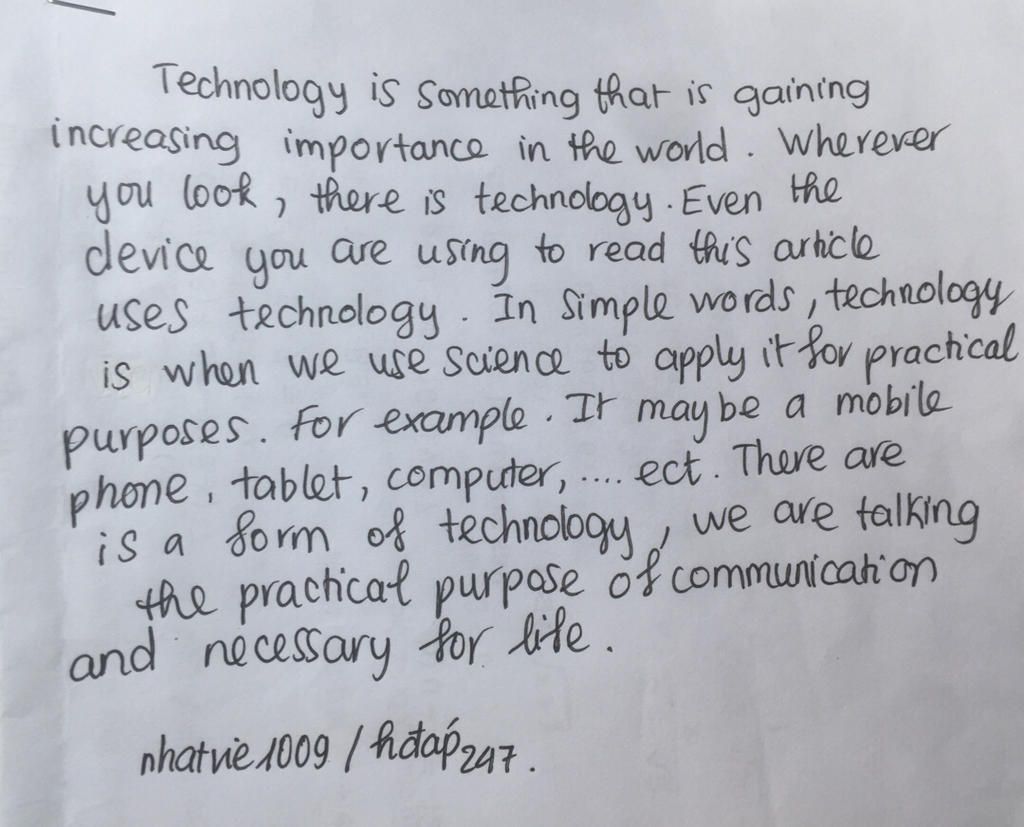 Technology is something that is gaining
increasing importance in the world. Wherever
you look, there is technology. Even the
device you are using to read this article
uses technology. In simple words, technology
is when we use science to apply it for practical
purposes. For example. It may be a mobile
phone, tablet, computer, .... ect. There are
is a form of technology, we are talking
the practical purpose of communication
and necessary for life.
nhatvie1009 / hđáp247.